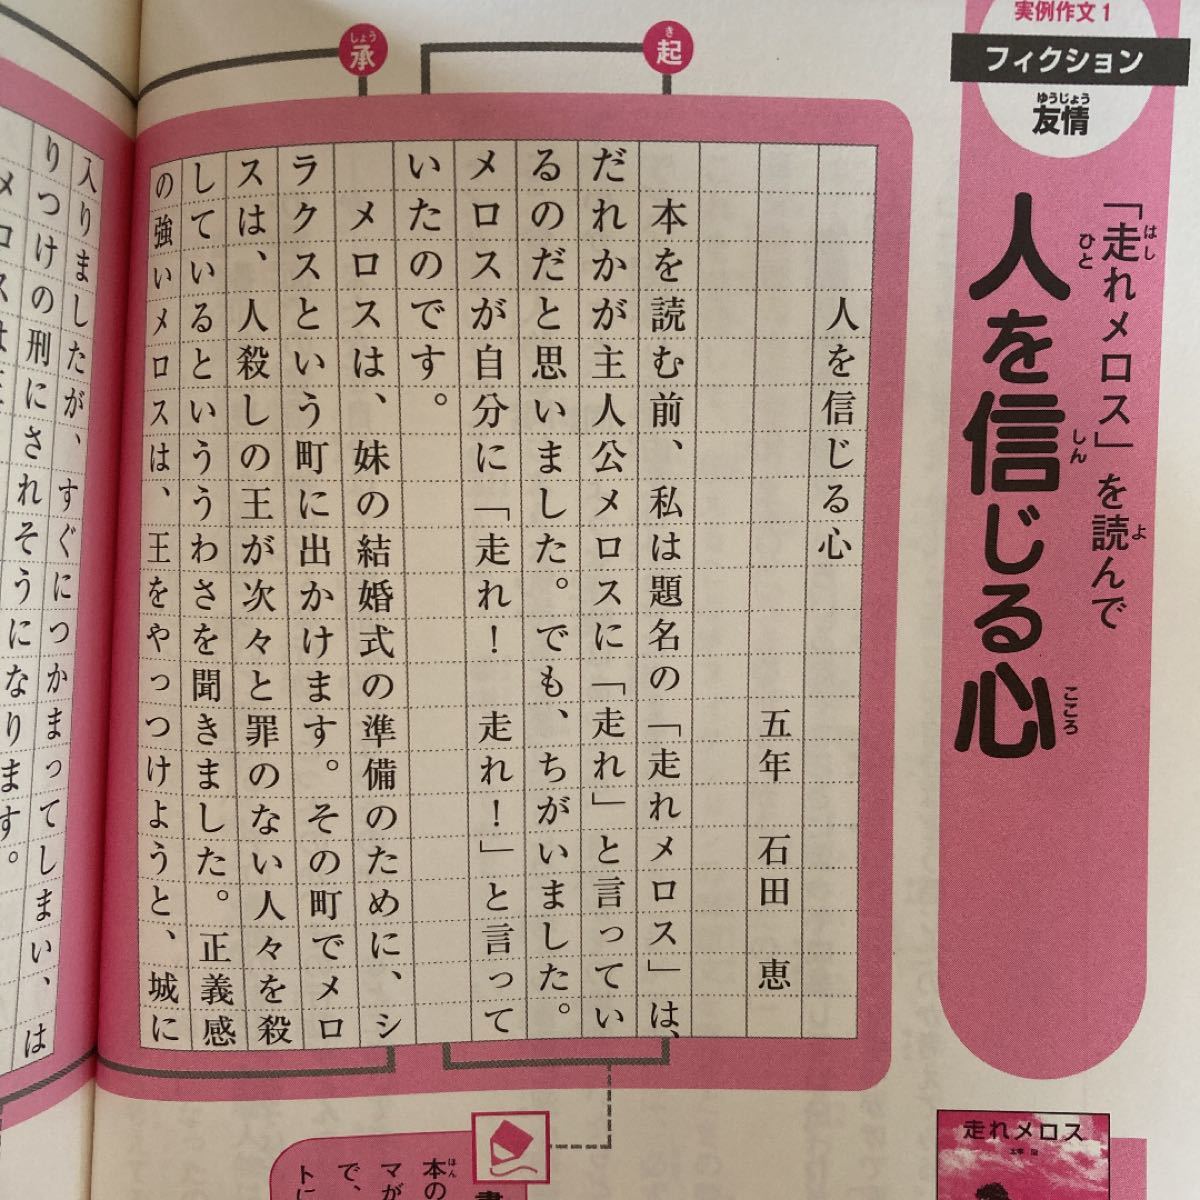 実例作文1
フィクション
友情
ゆうじょう
「走れメロス」を読んで
はし
よ
人を信じる心
ひと
しん
こころ
起
き
承
しょう
人を信じる心
五年 石田 恵
本を読む前、私は題名の「走れメロス」は、
だれかが主人公メロスに「走れ」と言ってい
るのだと思いました。でも、ちがいました。
メロスが自分に「走れ! 走れ!」と言って
いたのです。
メロスは、妹の結婚式の準備のために、シ
ラクスという町に出かけます。その町でメロ
スは、人殺しの王が次々と罪のない人々を殺
しているといううわさを聞きました。正義感
の強いメロスは、王をやっつけようと、城に
入りましたが、すぐにつかまってしまい、は
りつけの刑にされそうになります。
走れメロス
本の
ほん
マが
で、
トに